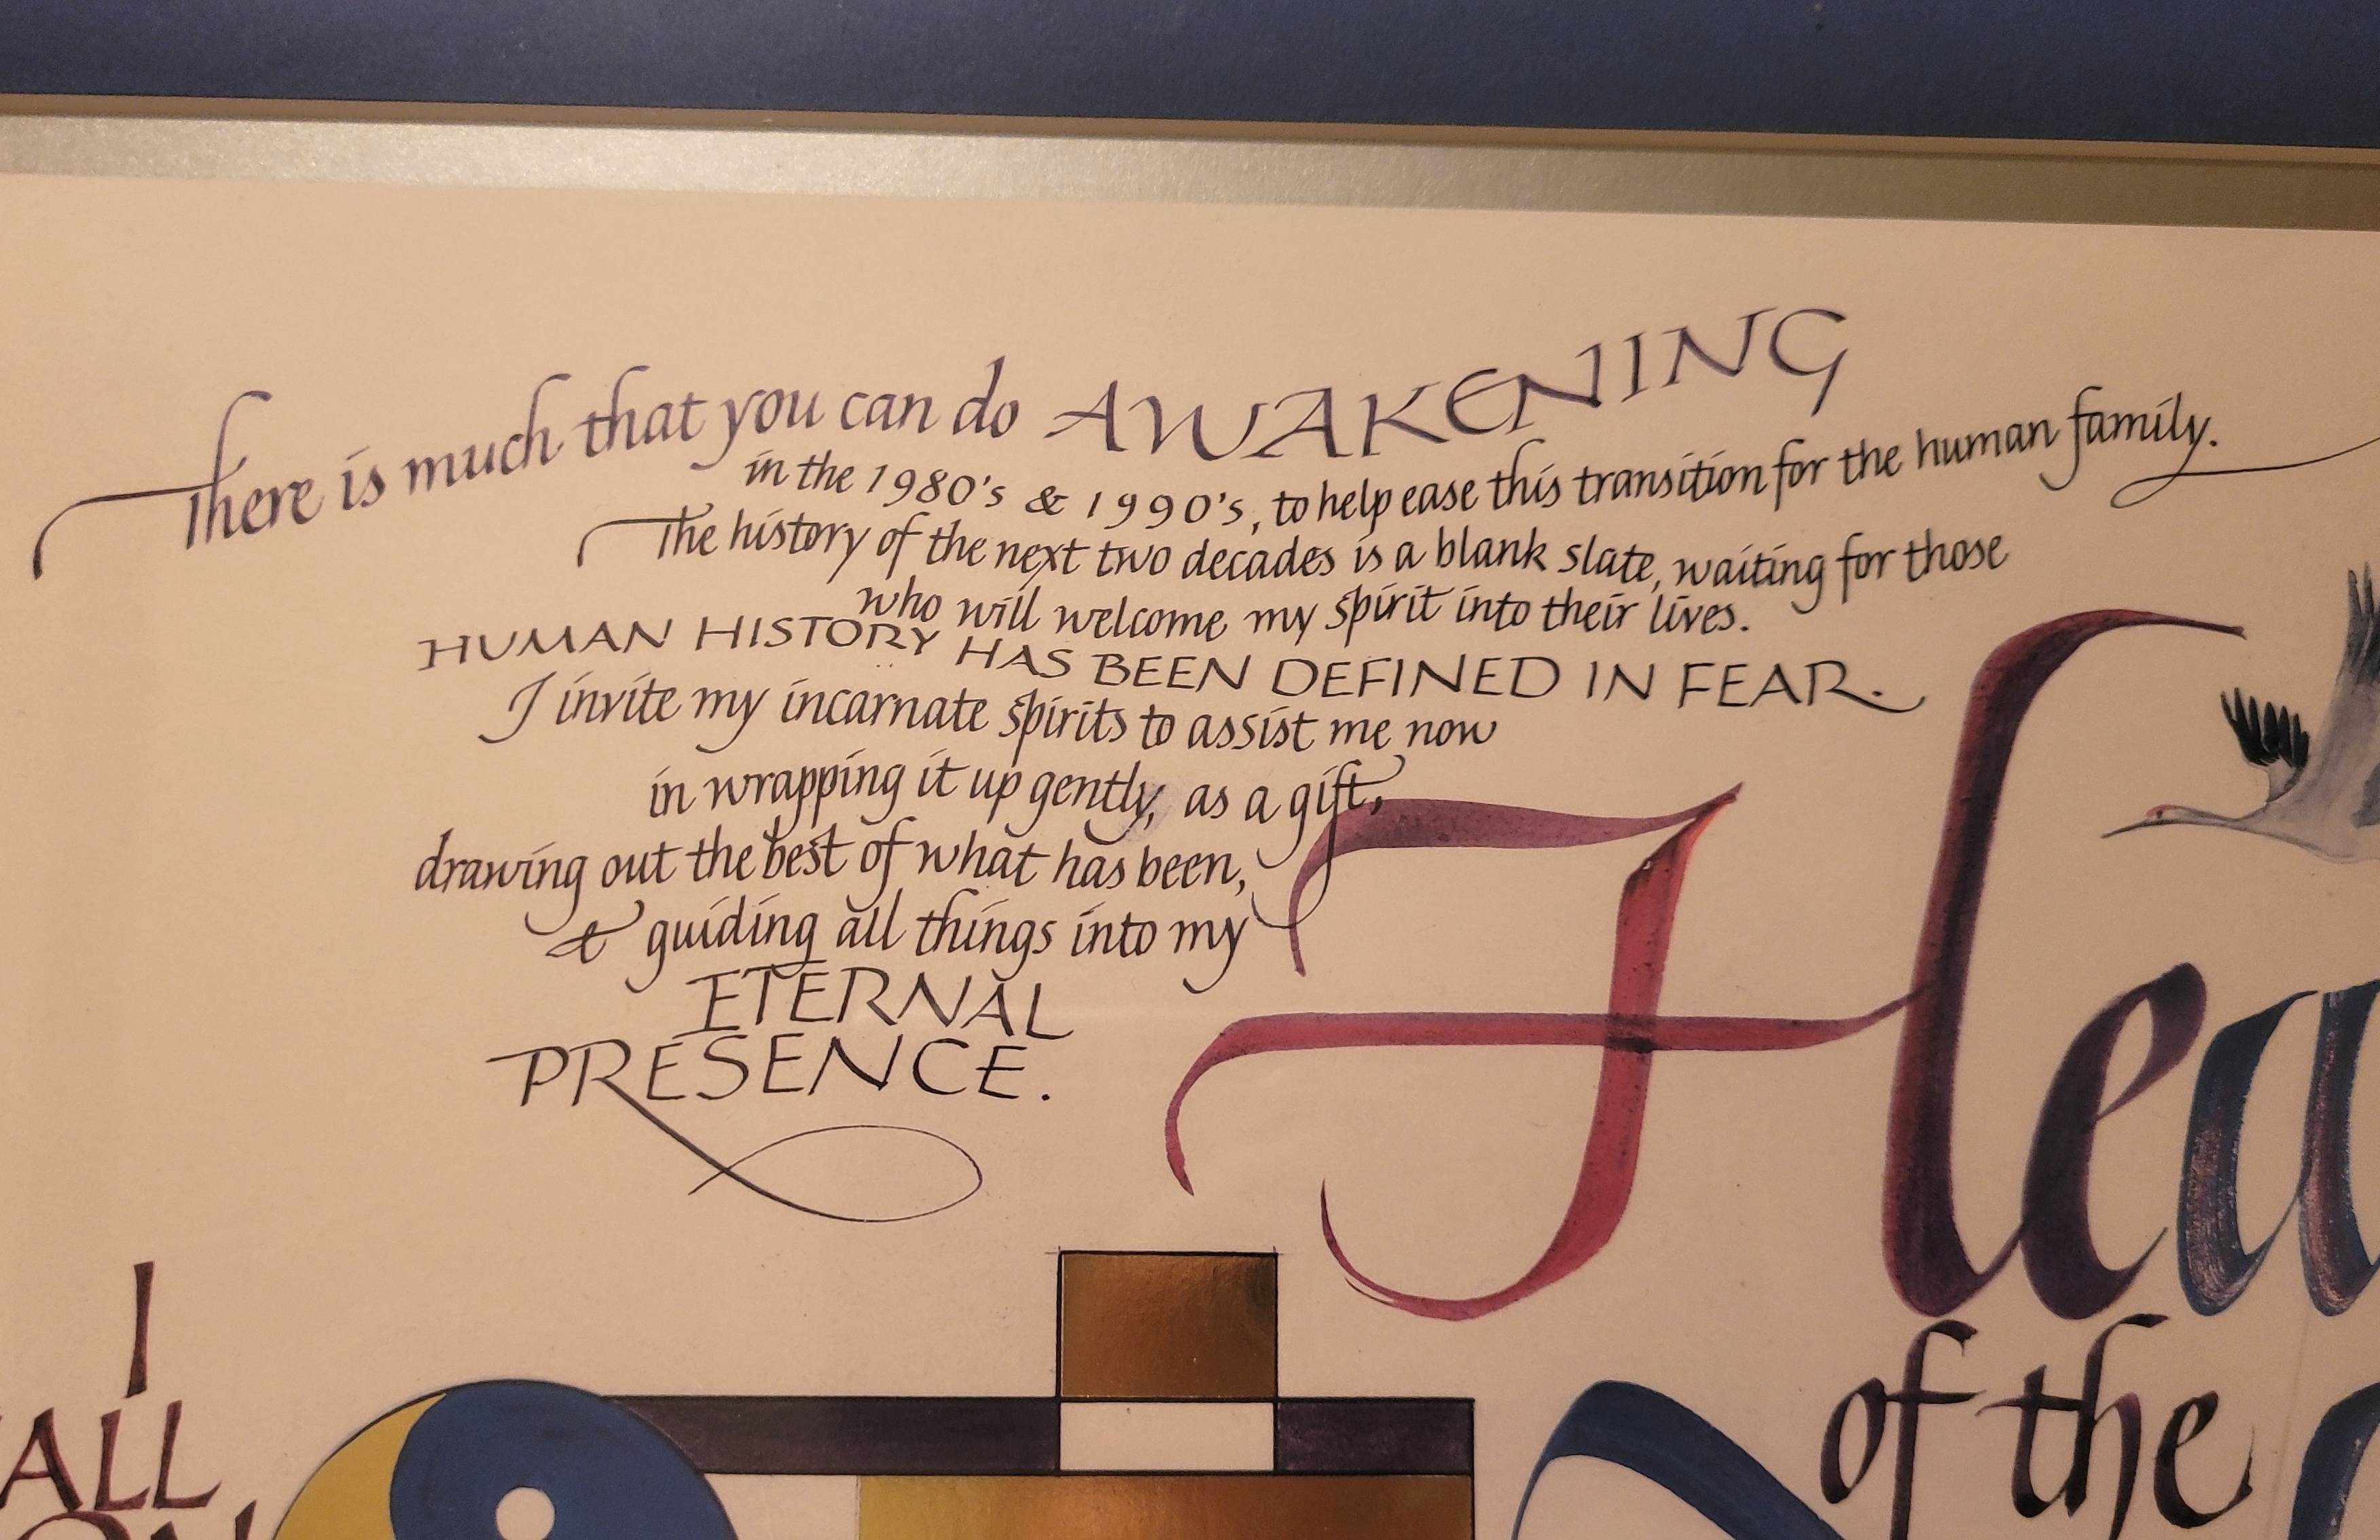 There is much that you can do AWAKENING
in the 1980's & 1990's, to help ease this transition for the human family.
The history of the next two decades is a blank slate, waiting for those
who will welcome my spirit into their lives.
HUMAN HISTORY HAS BEEN DEFINED IN FEAR.
I invite my incarnate spirits to assist me now
in wrapping it up gently, as a gift,
drawing out the best of what has been,
& guiding all things into my
ETERNAL
PRESENCE.
Hea
of the
I
ALL